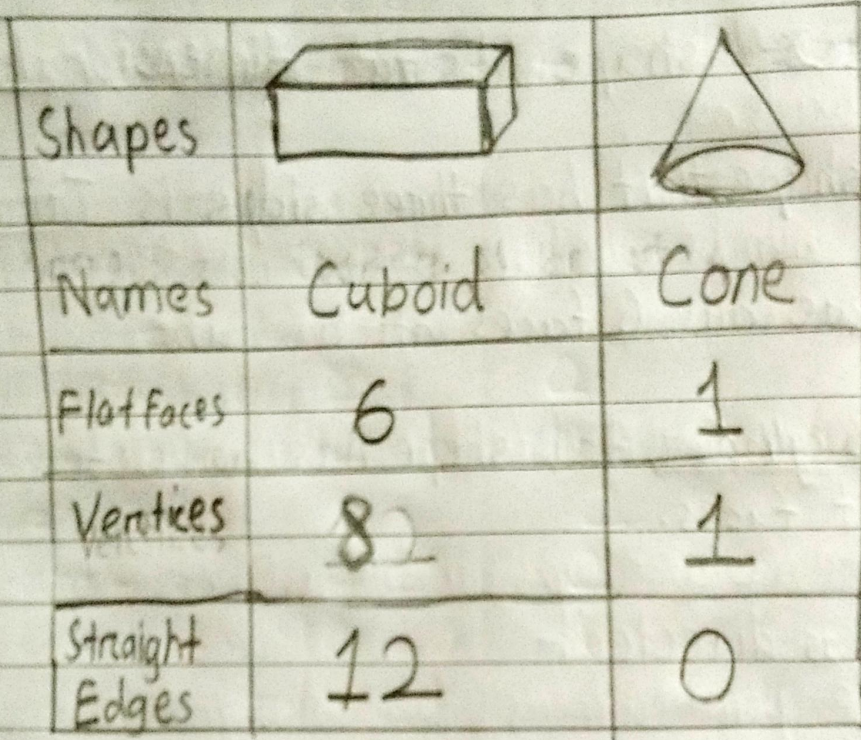 Shapes
Names Cuboid Cone
Flat Faces 6 1
Vertices 8 1
Straight
Edges 12 0